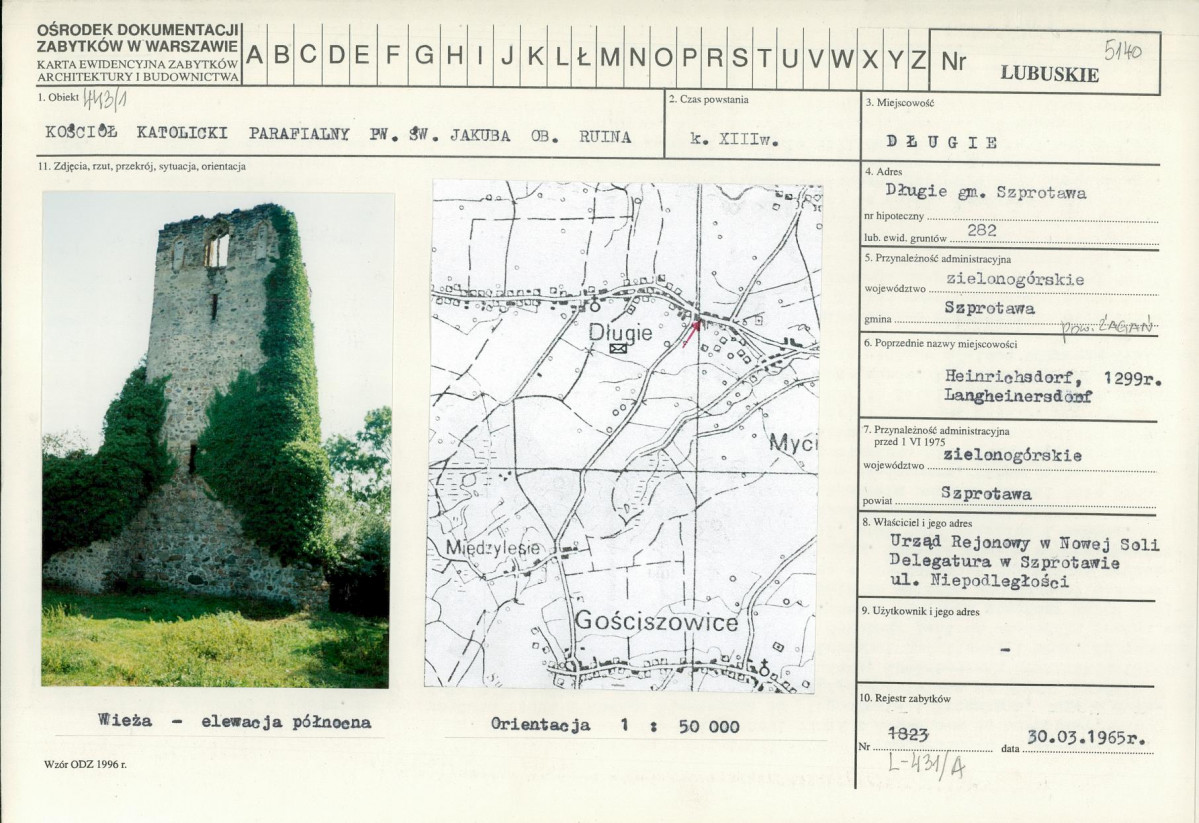 OŚRODEK DOKUMENTACJI
ZABYTKÓW W WARSZAWIE
KARTA EWIDENCYJNA ZABYTKÓW
ARCHITEKTURY I BUDOWNICTWA
A B C D E F G H I J K L Ł M N O P R S T U V W X Y Z
Nr 5140
LUBUSKIE
1. Obiekt 443/1
KOŚCIÓŁ KATOLICKI PARAFIALNY PW. ŚW. JAKUBA OB. RUINA
2. Czas powstania
k. XIIIw.
3. Miejscowość
DŁUGIE
11. Zdjęcia, rzut, przekrój, sytuacja, orientacja
Długie
Myci
Międzylesie
Gościszowice
Wieża - elewacja północna
Orientacja 1 : 50 000
Wzór ODZ 1996 r.
4. Adres
Długie gm. Szprotawa
nr hipoteczny
lub. ewid. gruntów 282
5. Przynależność administracyjna
województwo zielonogórskie
gmina Szprotawa
pow. ŻAGAŃ
6. Poprzednie nazwy miejscowości
Heinrichsdorf, 1299r.
Langheinersdorf
7. Przynależność administracyjna
przed 1 VI 1975
województwo zielonogórskie
powiat Szprotawa
8. Właściciel i jego adres
Urząd Rejonowy w Nowej Soli
Delegatura w Szprotawie
ul. Niepodległości
9. Użytkownik i jego adres
-
10. Rejestr zabytków
Nr 1823 data 30.03.1965r.
L-431/A